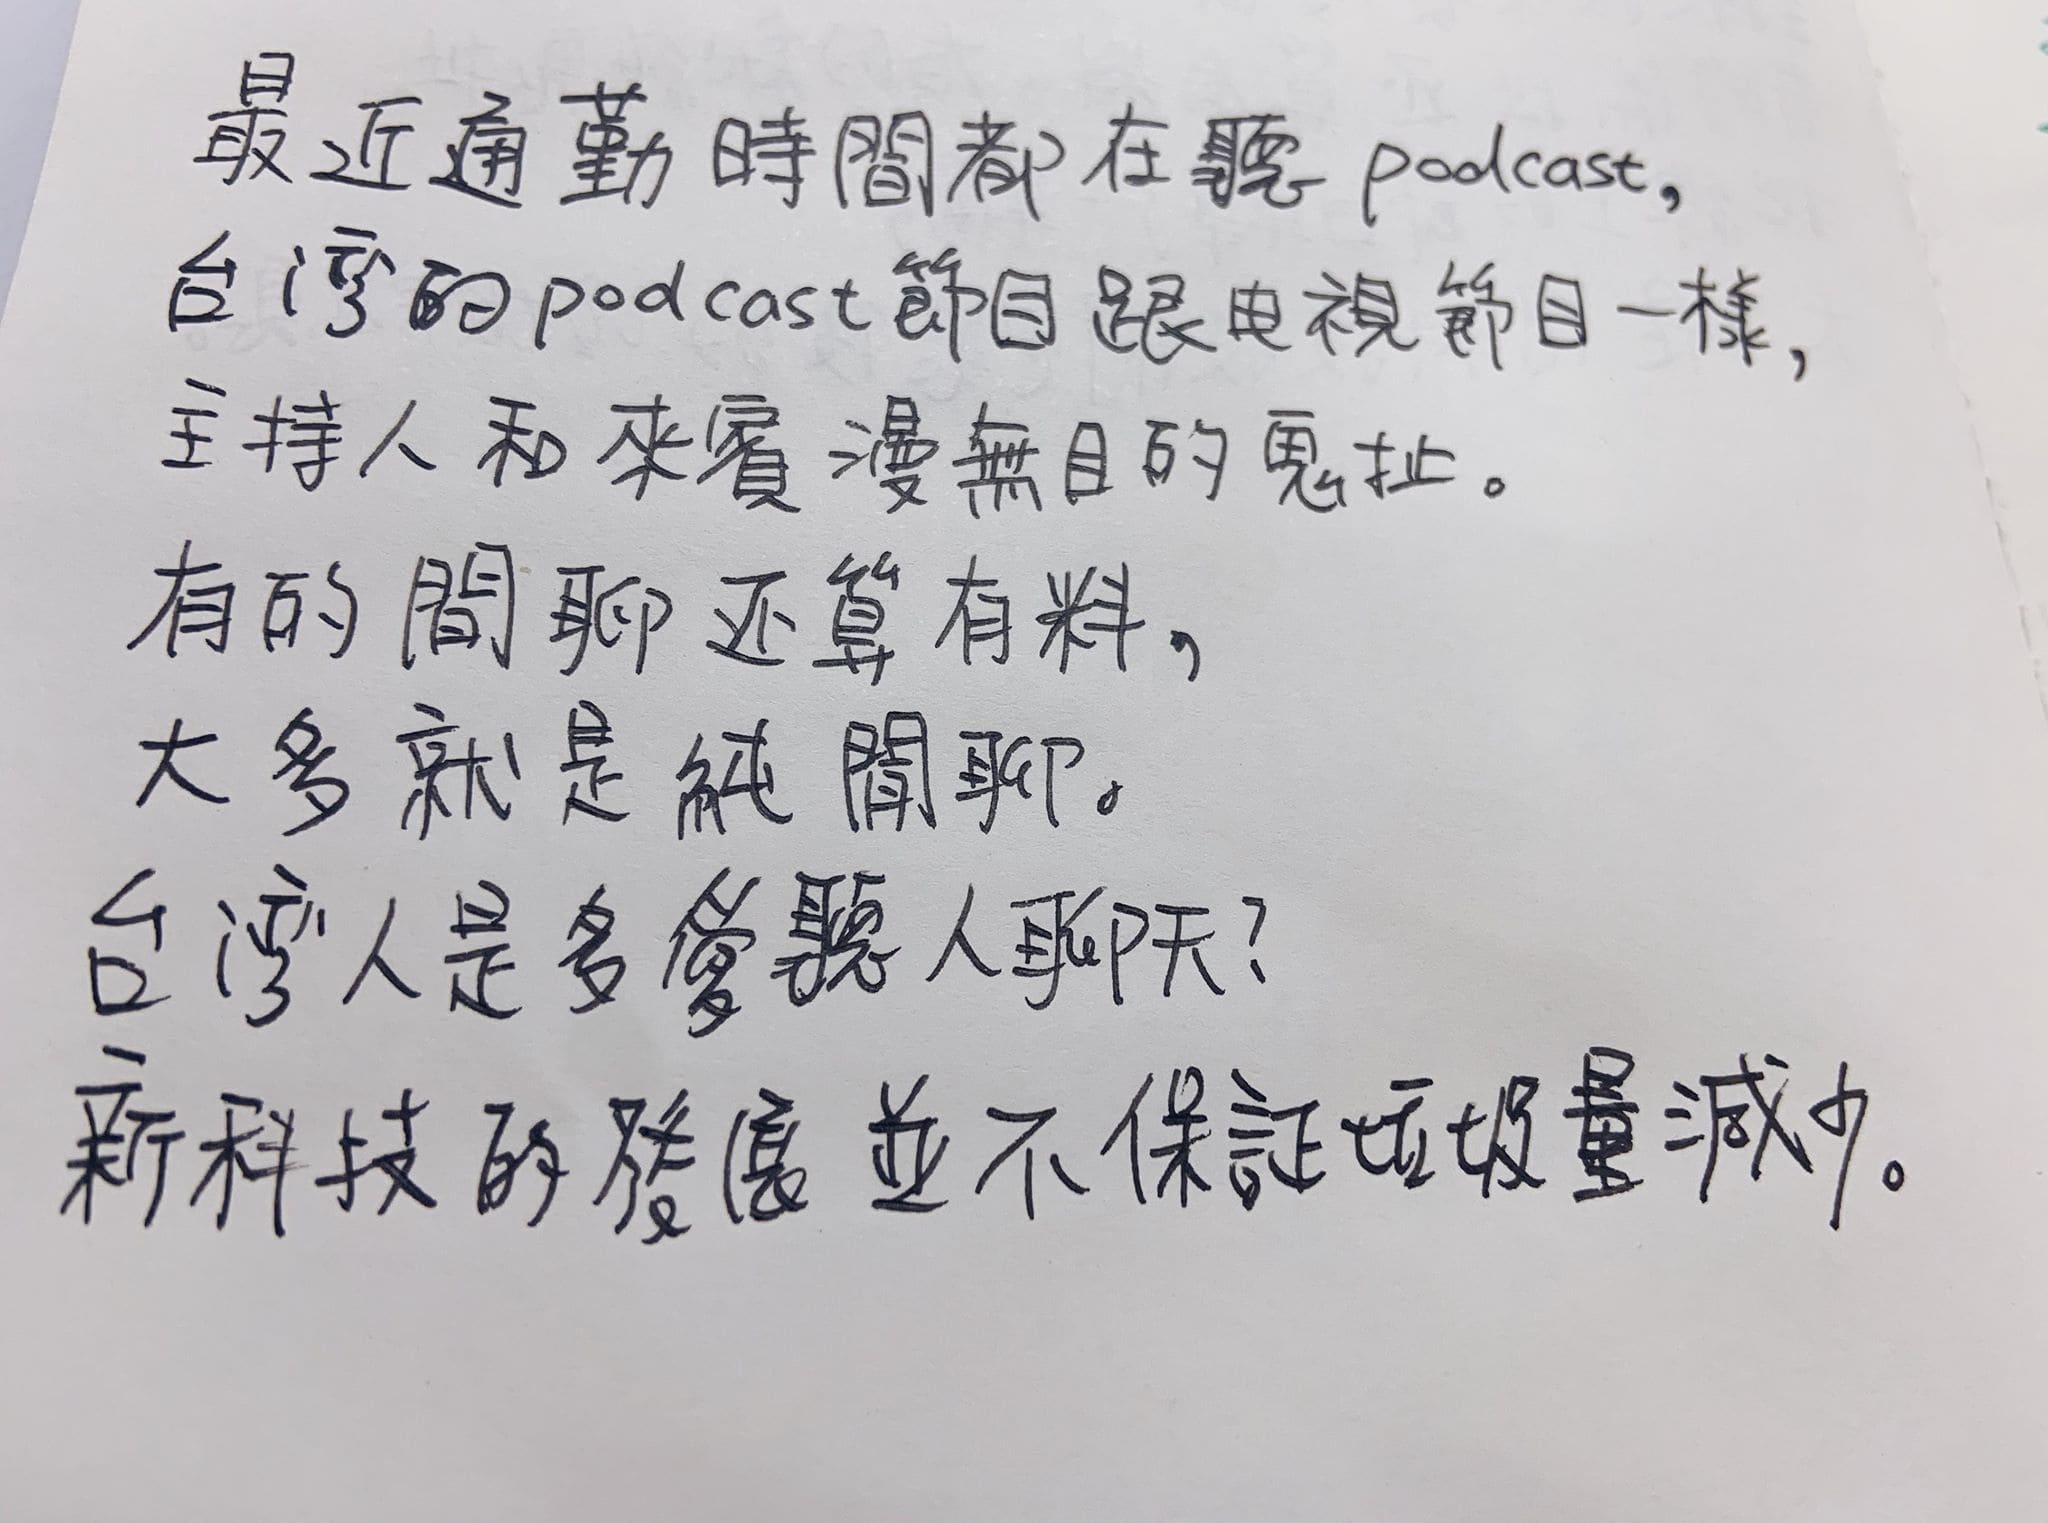 最近通勤時間都在聽 podcast,
台湾的podcast節目跟电視節目一樣,
主持人和來賓漫無目的鬼扯。
有的閒聊还算有料,
大多就是純閒聊。
台湾人是多愛聽人聊天?
新科技的發展並不保証垃圾量減少。